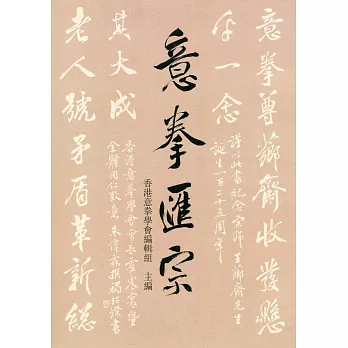 意拳匯宗
香港意拳學會編輯組 主編
意拳尊薌齋收發懸
于一念
謹以此書紀念宗師王薌齋先生
誕生一百二十五周年
其大成
老人號矛盾革新總
香港意拳學會會長霍震寰暨
全體同仁致意